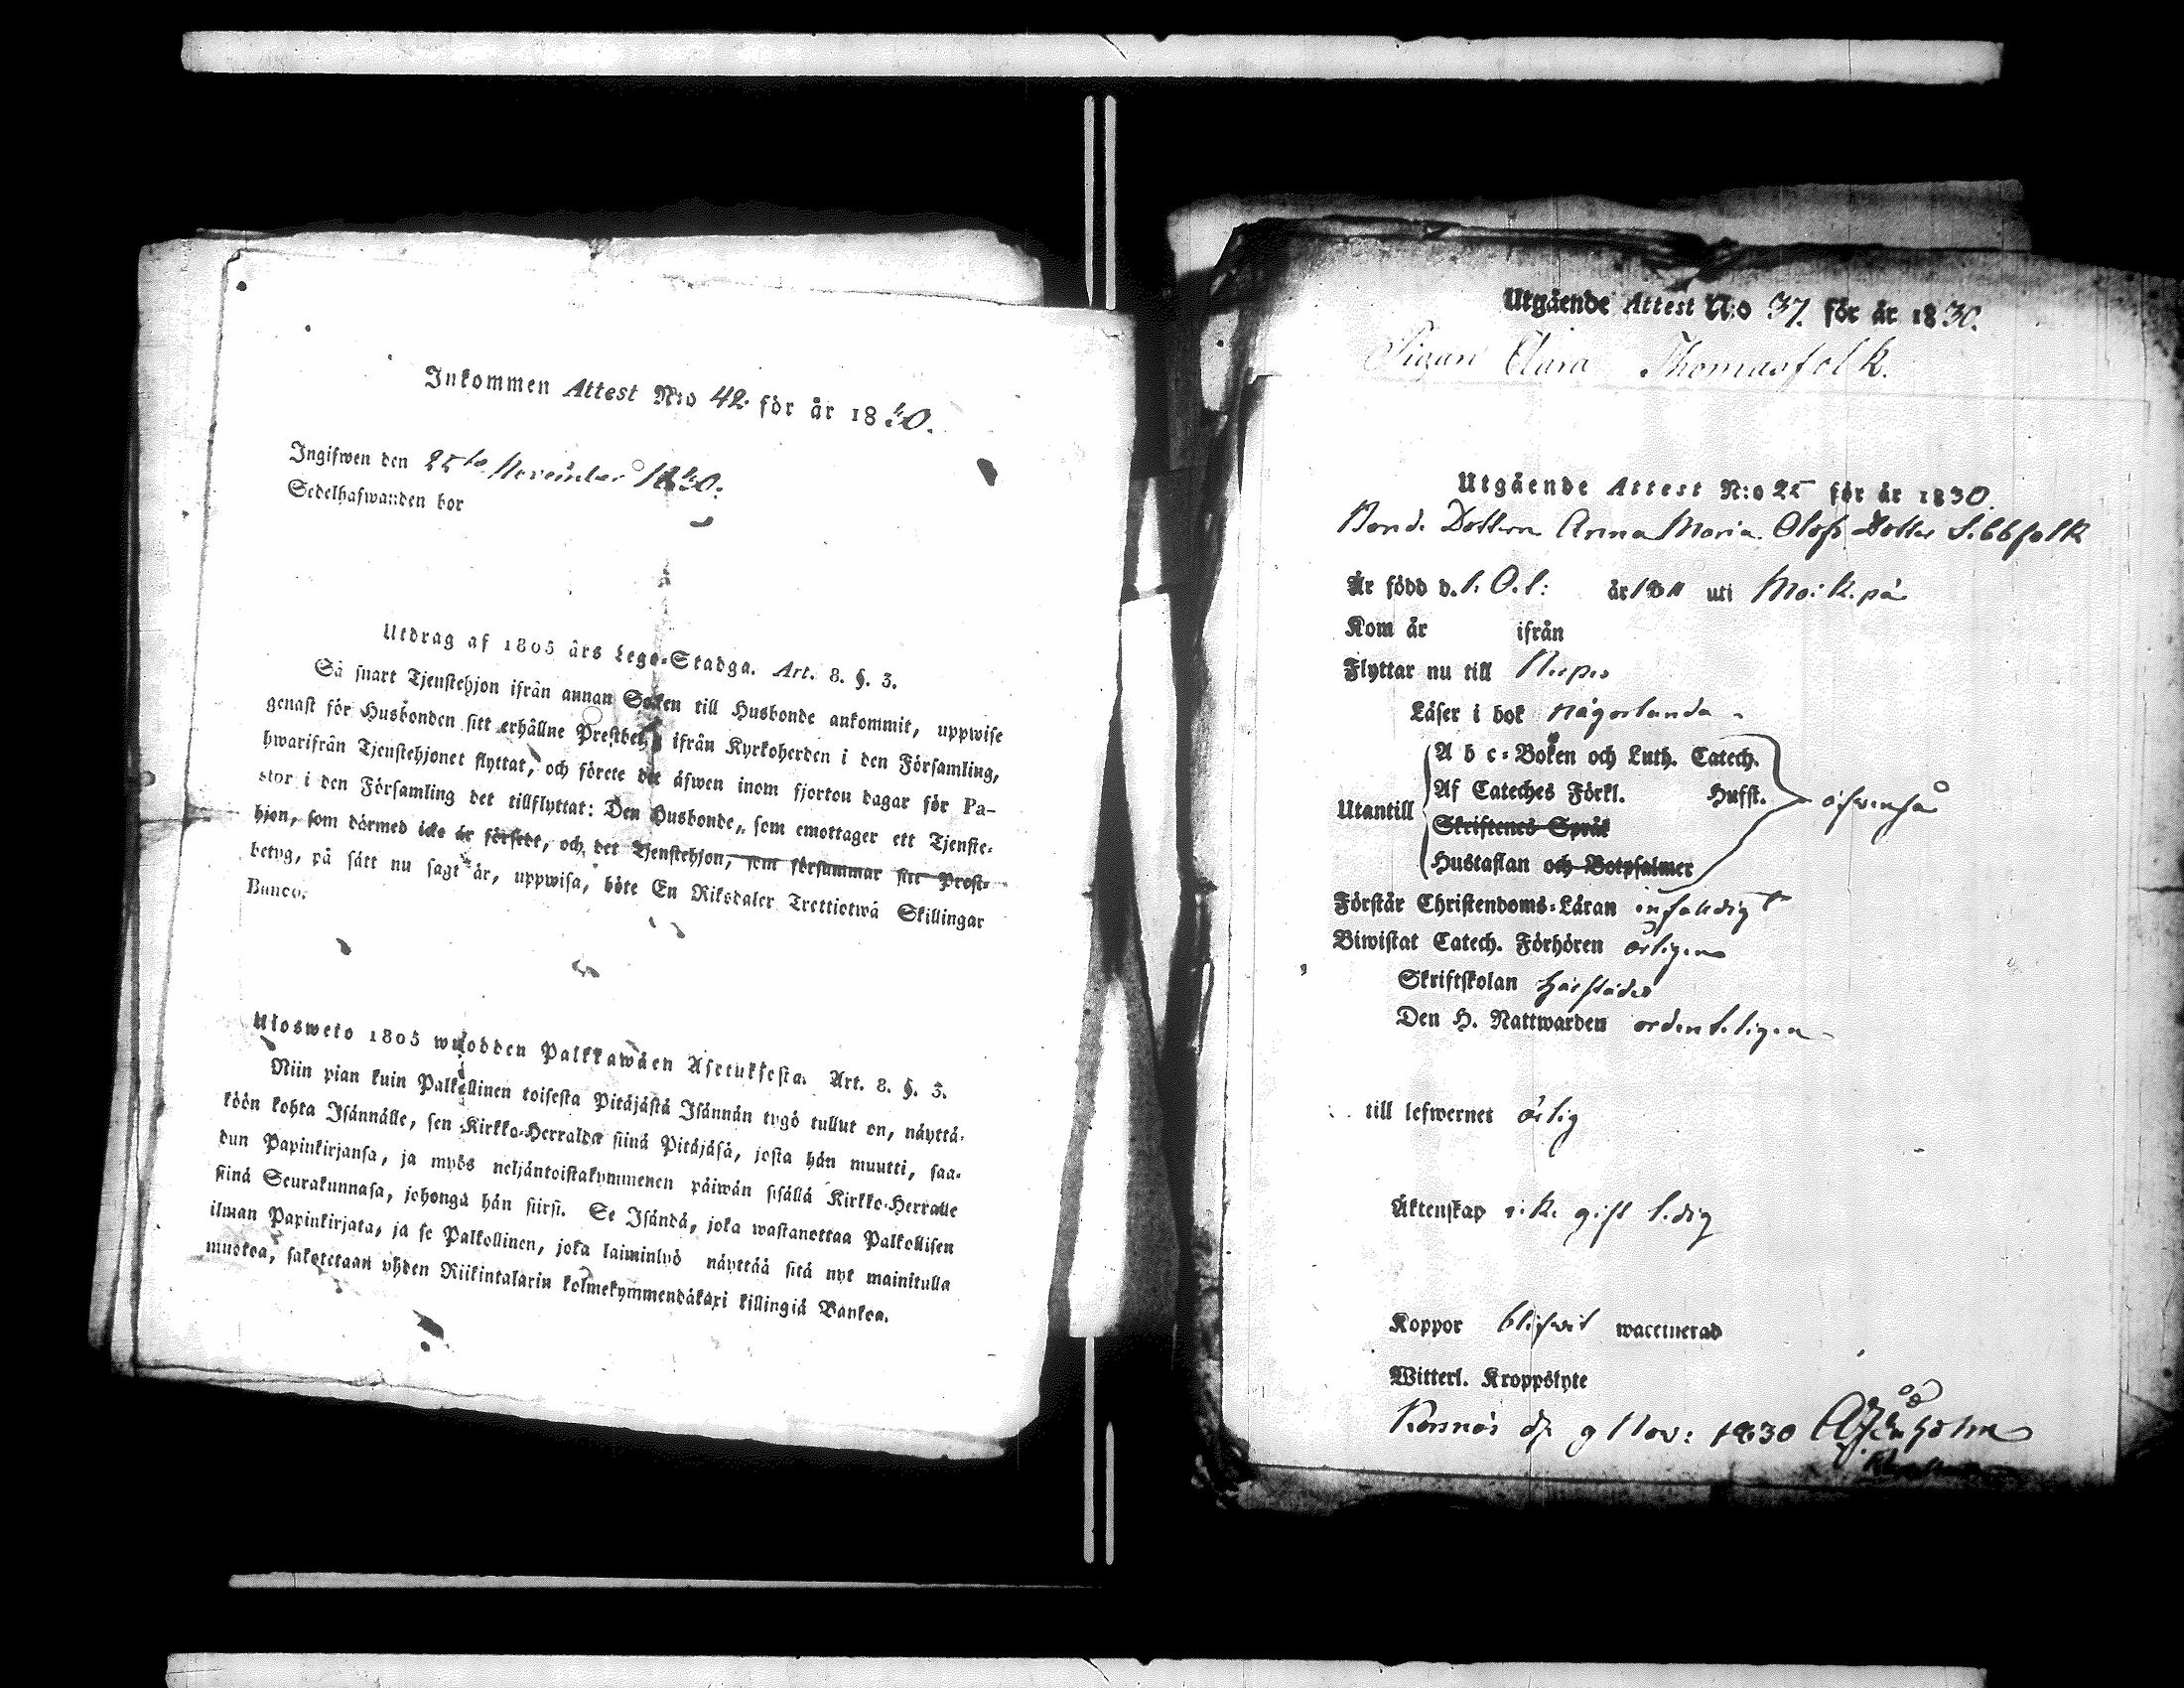 Inkommen Attest N:o 42. för år 1830.
Ingifwen den 25te November 1830.
Sedelhafwanden bor
Utdrag af 1805 års Lego-Stadga. Art. 8. §. 3.
Så snart Tjenstehjon ifrån annan Socken till Husbonde ankommit, uppwise
genast för Husbonden sitt erhållne Prestbetyg ifrån Kyrkoherden i den Församling,
hwarifrån Tjenstehjonet flyttat, och förete det äfwen inom fjorton dagar för Pa-
stor i den Församling det tillflyttat: Den Husbonde, som emottager ett Tjenste-
hjon, som därmed icke är försedt, och det Tjenstehjon, som försummar sitt Prest-
betyg, på sätt nu sagt är, uppwisa, böte En Riksdaler Trettiotwå Skillingar
Banco.
Ulosweto 1805 wuodden Palkkawäen Asetuksesta. Art. 8. §. 3.
Niin pian kuin Palkollinen toisesta Pitäjästä Isännän tygö tullut on, näyttä-
köön kohta Isännälle, sen Kirkko-Herralda siinä Pitäjäsä, josta hän muutti, saa-
dun Papinkirjansa, ja myös neljäntoistakymmenen päiwän sisällä Kirkko-Herralle
siinä Seurakunnasa, johonga hän siirsi. Se Isändä, joka wastanottaa Palkollisen
ilman Papinkirjata, ja se Palkollinen, joka laiminlyö näyttää sitä nyt mainitulla
muotoa, sakotetaan yhden Riikintalarin kolmekymmendäkaxi killingiä Bankoa.
Utgående Attest N:o 37. för år 1830.
Pigan Clara Thomasfolk.
Utgående Attest N:o 25 för år 1830.
Bonde Dottern Anna Maria Olofs Dotter Sibbfolk
Är född d. 1. Oct: år 1811 uti Moikipä
Kom år ifrån
Flyttar nu till
Läser i bok någorlunda
A b c-Boken och Luth. Catech.
Af Cateches Förkl. Husst.
Utantill äfwenså
Skriftenes Språk
Hustaflan och Botpsalmer
Förstår Christendoms-Läran enfaldigt
Biwistat Catech. Förhören årligen
Skriftskolan härstädes
Den H. Nattwarden ordenteligen
till lefwernet ärlig
Äktenskap icke gift ledig
Koppor blifwit waccinerad
Witterl. Kroppslyte
Korsnäs d. 9 Nov: 1830